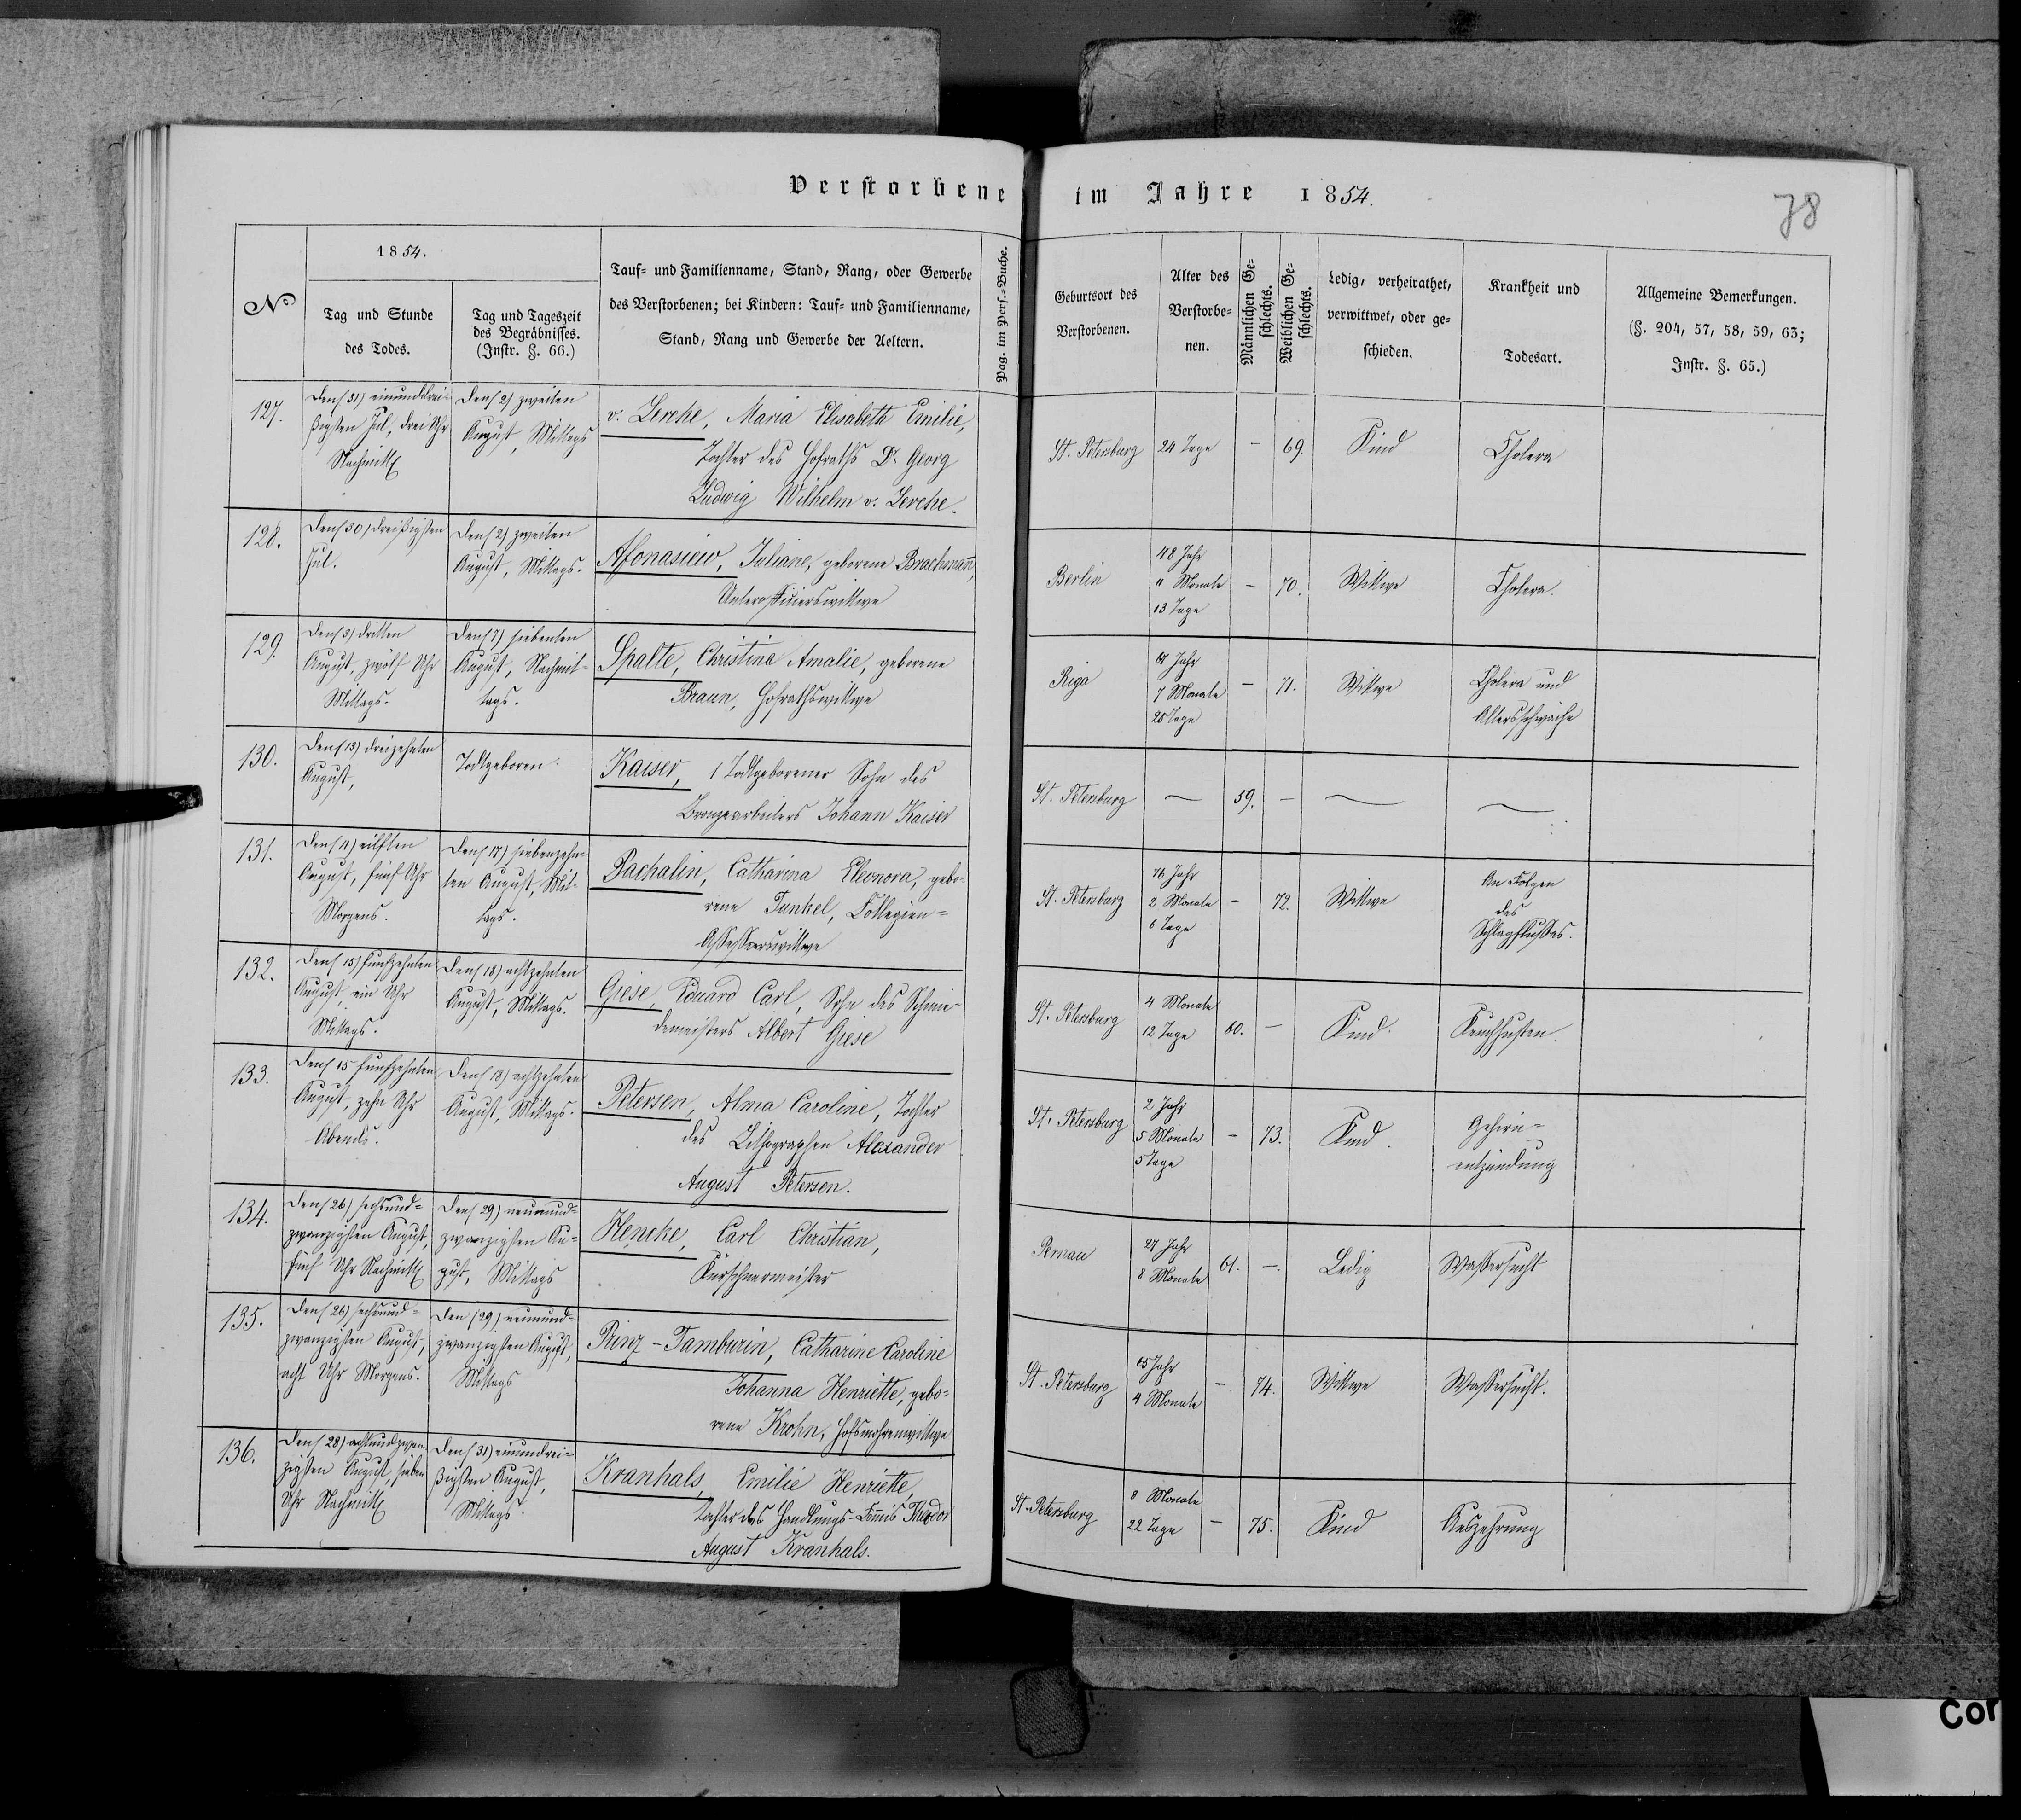 Verstorbene im Jahre 1854.
78
No
1854.
Tag und Stunde
des Todes.
Tag und Tageszeit
des Begräbnisses.
(Instr. §. 66.)
Tauf= und Familienname, Stand, Rang, oder Gewerbe
des Verstorbenen; bei Kindern: Tauf= und Familienname,
Stand, Rang und Gewerbe der Aeltern.
Pag. im Pers.=Buche.
Geburtsort des
Verstorbenen.
Alter des
Verstorbe=
nen.
Männlichen Ge=
schlechts.
Weiblichen Ge=
schlechts.
Ledig, verheirathet,
verwittwet, oder ge=
schieden.
Krankheit und
Todesart.
Allgemeine Bemerkungen.
(§. 204, 57, 58, 59, 63;
Instr. §. 65.)
127.
Den (31) einunddrei=
ßigsten Jul, drei Uhr
Nachmitt
Den (2) zweiten
August, Mittags
v. Lerche, Maria Elisabeth Emilie,
Tochter des Hofraths Dr. Georg
Ludwig Wilhelm v. Lerche.
St. Petersburg
24 Tage
–
69.
Kind
Cholera
128.
Den (30) dreißigsten
Jul.
Den (2) zweiten
August, Mittags.
Afonasiew, Juliane, geborene Brachmañ,
Unteroffizierswittwe
Berlin
48 Jahr
" Monate
13 Tage
–
70.
Wittwe
Cholera.
129.
Den (3) dritten
August, zwölf Uhr
Mittags.
Den (7) siebenten
August, Nachmit=
tags.
Spalte, Christina Amalie, geborene
Braun, Hofrathswittwe
Riga
7 Monate
25 Tage
–
71.
Wittwe
Cholera und
Altersschwäche
130.
Den (13) dreizehnten
August,
Todtgeboren.
Kaiser, 1 Todtgeborener Sohn des
Bronzearbeiters Johann Kaiser
St. Petersburg
–
59.
–
–
–
131.
Den (11) eilften
August, fünf Uhr
Morgens.
Den (17) siebenzehn=
ten August, Mit=
tags.
Pachalin, Catharina Eleonora, gebo=
rene Tunkel, Collegien=
Assessorswittwe
St. Petersburg
76 Jahr
2 Monate
6 Tage
–
72.
Wittwe
An Folgen
des
Schlagflusses.
132.
Den (15) funfzehnten
August, ein Uhr
Mittags.
Den (18) achtzehnten
August, Mittags.
Giese, Eduard Carl, Sohn des Schmie=
demeisters Albert Giese
St. Petersburg
4 Monate
12 Tage
60.
–
Kind.
Keuchhusten.
133.
Den (15 funfzehnten
August, zehn Uhr
Abends.
Den (18) achtzehnten
August, Mittags.
Petersen, Alma Caroline, Tochter
des Lithographen Alexander
August Petersen.
St. Petersburg
2 Jahr
5 Monate
5 Tage
–
73.
Kind.
Gehirn=
entzündung
134.
Den (26) sechsund=
zwanzigsten August,
fünf Uhr Nachmitt
Den (29) neunund=
zwanzigsten Au=
gust, Mittags
Hencke, Carl Christian,
Kürschnermeister
Pernau
27 Jahr
8 Monate
61.
–
Ledig
Wassersucht
135.
Den (26) sechsund=
zwanzigsten August,
acht Uhr Morgens.
Den (29) neunund=
zwanzigsten August,
Mittags
Prinz-Tamburin, Catharine Caroline
Johanna Henriette, gebo=
rene Krohn, Hofsmohrenwittwe
St. Petersburg
65 Jahr
4 Monate
–
74.
Wittwe
Wassersucht.
136.
Den (28) achtundzwan
zigsten August, sieben
Uhr Nachmitt
Den (31) einunddrei=
ßigsten August,
Mittags.
Kranhals, Emilie Henriette,
Tochter des Handlungs-Com̄is Theodor
August Kranhals.
St. Petersburg
8 Monate
22 Tage
–
75.
Kind
Auszehrung
Cor